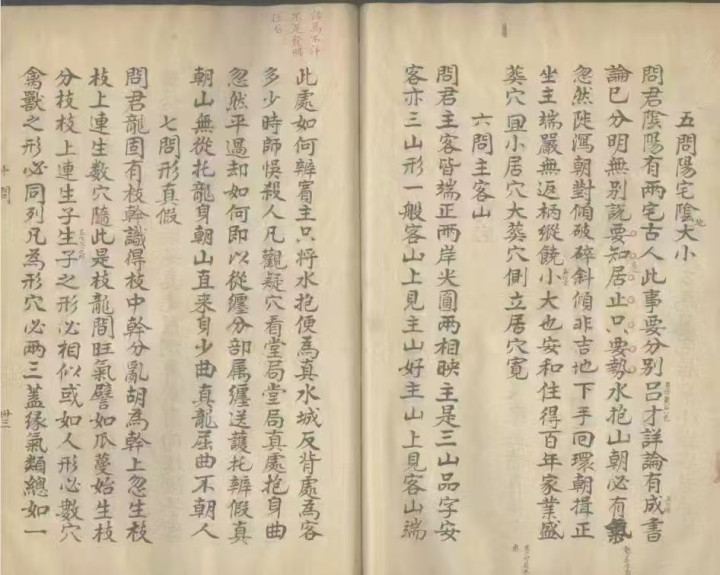 五問陽宅陰大小
問君陰陽有兩宅古人此事要分别呂才詳論有成書
論已分明無别說要知居止只要勢水抱山朝必有氣
忽然陡瀉朝對傾破碎斜傾非吉地下手回環朝揖正
坐主端嚴無返柄縱饒小大也安和住得百年家業盛
葬穴㘣小居穴大葬穴側立居穴寛
六問主客山
問君主客皆端正兩岸火圓兩相映主是三山品字安
客亦三山形一般客山上見主山好主山上見客山端
此處如何辨賓主只將水抱便為真水城反背處為客
多少時師悞殺人凡觀疑穴看堂局堂局真處抱身曲
忽然平過却如何即以從纏分部属纏送護托辨假真
朝山無從托龍身朝山直来身少曲真龍屈曲不朝人
七問形真假
問君龍固有枝幹識得枝中幹分亂胡為幹上忽生枝
枝上連生數穴隨此是枝龍間旺氣譬如瓜蔓始生枝
分枝枝上連生子生子之形必相似或如人形必數穴
禽獸之形必同列凡為形穴必兩三蓋缘氣類總如一
十問
卅三